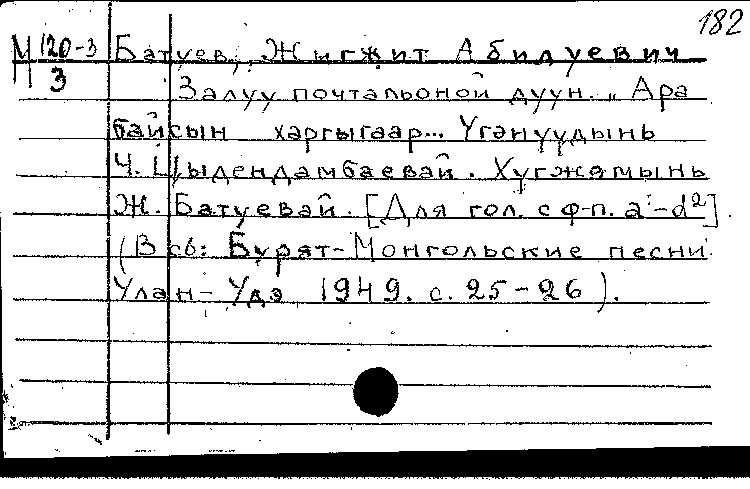 182
М 120-3
3
Батуев, Жигжит Абидуевич
Залуу почтальоной дуун. „Ара
байсын харгыгаар... Үгэнүүдынь
Ч. Цыдендамбаевай. Хүгжэмынь
Ж. Батуевай. [Для гол. с ф-п. a'-d²].
(В сб: Бурят-Монгольские песни.
Улан-Удэ 1949. с. 25-26).